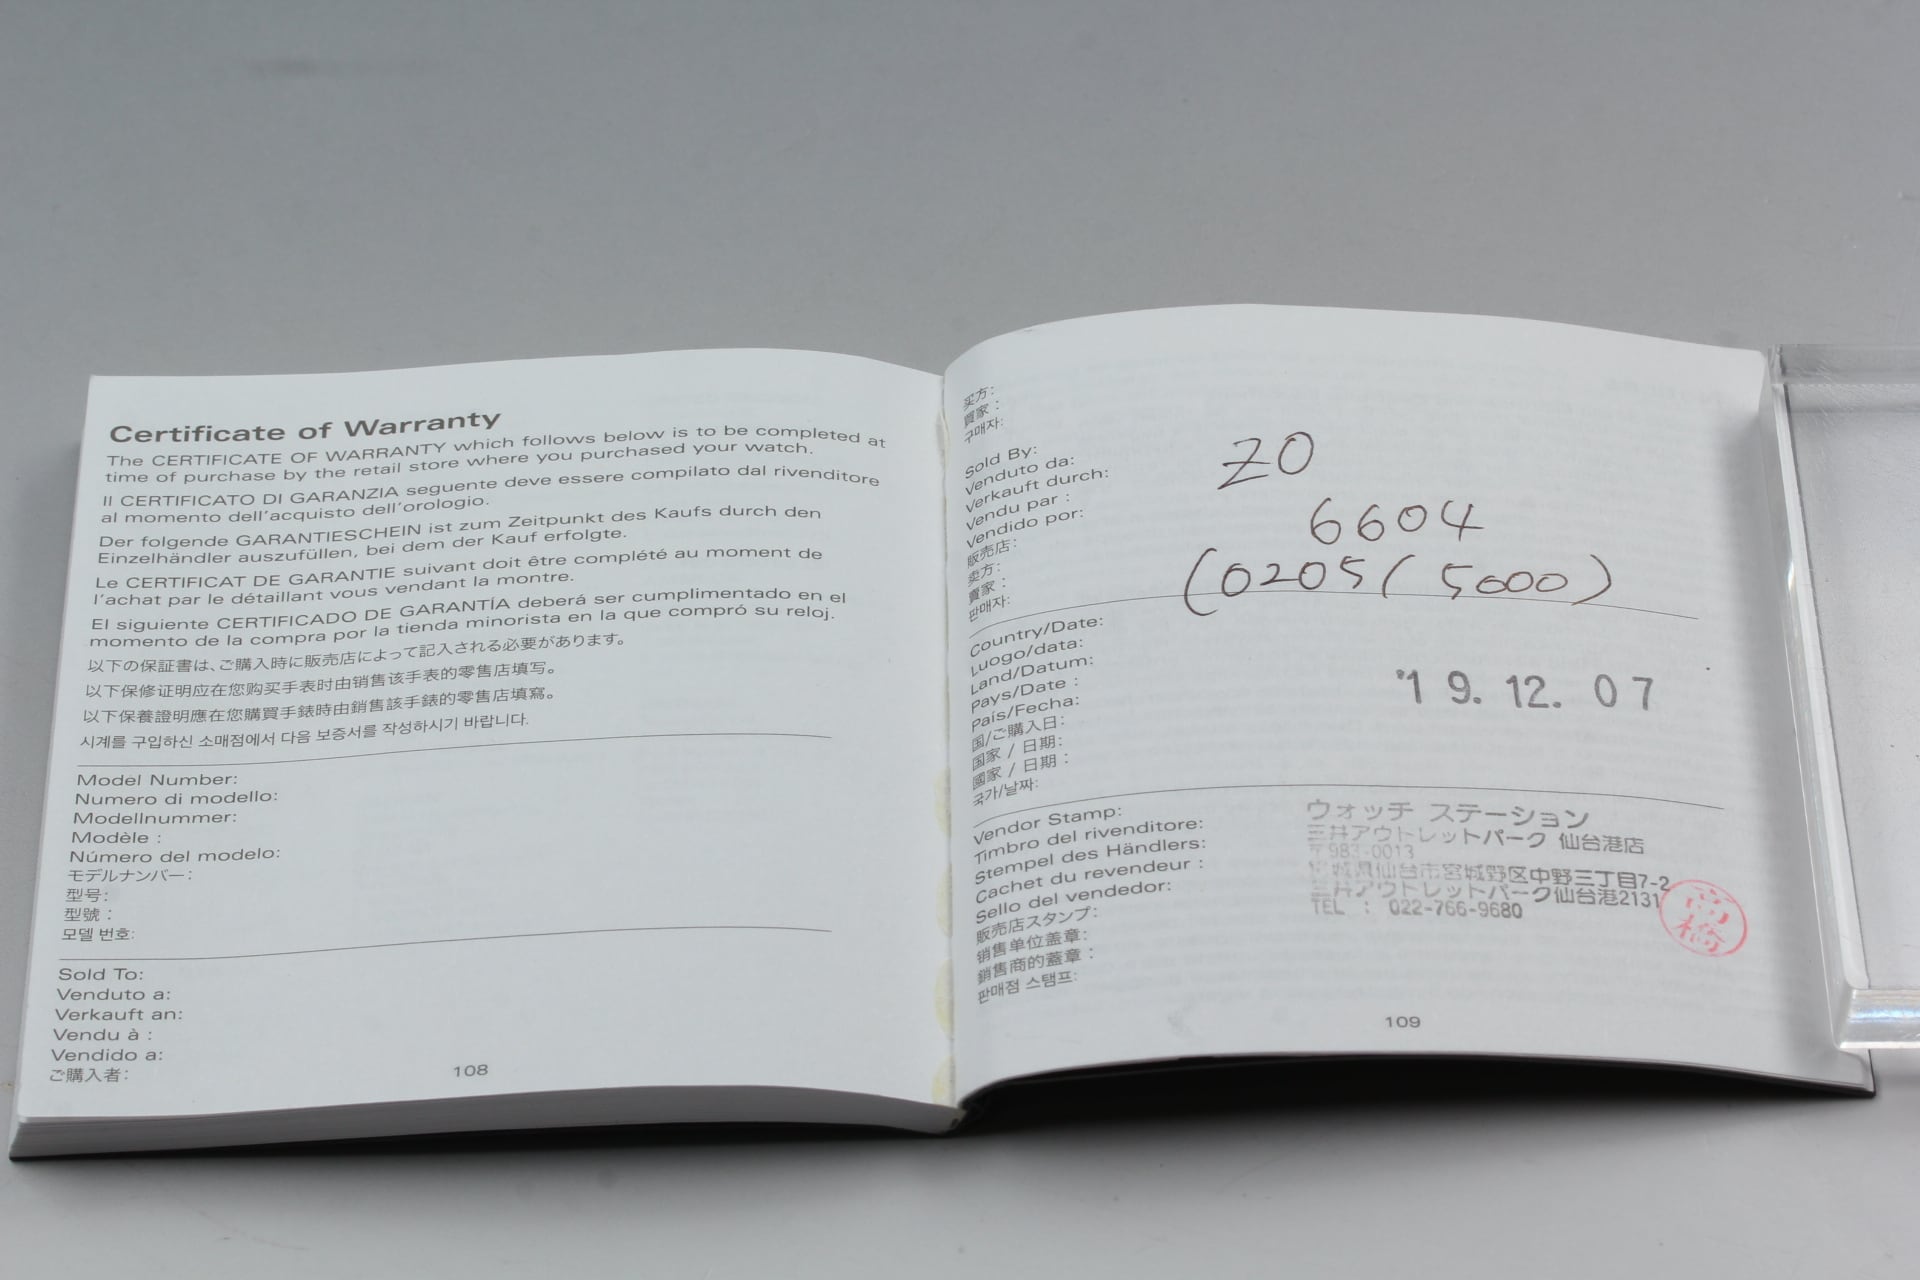 Certificate of Warranty
The CERTIFICATE OF WARRANTY which follows below is to be completed at
time of purchase by the retail store where you purchased your watch.
Il CERTIFICATO DI GARANZIA seguente deve essere compilato dal rivenditore
al momento dell'acquisto dell'orologio.
Der folgende GARANTIESCHEIN ist zum Zeitpunkt des Kaufs durch den
Einzelhändler auszufüllen, bei dem der Kauf erfolgte.
Le CERTIFICAT DE GARANTIE suivant doit être complété au moment de
l'achat par le détaillant vous vendant la montre.
El siguiente CERTIFICADO DE GARANTÍA deberá ser cumplimentado en el
momento de la compra por la tienda minorista en la que compró su reloj.
以下の保証書は、ご購入時に販売店によって記入される必要があります。
以下保修证明应在您购买手表时由销售该手表的零售店填写。
以下保養證明應在您購買手錶時由銷售該手錶的零售店填寫。
시계를 구입하신 소매점에서 다음 보증서를 작성하시기 바랍니다.
Model Number:
Numero di modello:
Modellnummer:
Modèle :
Número del modelo:
モデルナンバー:
型号:
型號 :
모델 번호:
Sold To:
Venduto a:
Verkauft an:
Vendu à :
Vendido a:
ご購入者:
108
买方:
買家 :
구매자:
Sold By:
Venduto da:
Verkauft durch:
Vendu par :
Vendido por:
販売店:
卖方:
賣家 :
판매자:
ZO
6604
(0205(5000)
Country/Date:
Luogo/data:
Land/Datum:
Pays/Date :
País/Fecha:
国/ご購入日:
国家 / 日期:
國家 / 日期 :
국가/날짜:
'19.12.07
Vendor Stamp:
Timbro del rivenditore:
Stempel des Händlers:
Cachet du revendeur :
Sello del vendedor:
販売店スタンプ:
销售单位盖章:
銷售商的蓋章 :
판매점 스탬프:
ウォッチ ステーション
三井アウトレットパーク 仙台港店
〒983-0013
宮城県仙台市宮城野区中野三丁目7-2
三井アウトレットパーク仙台港2131
TEL : 022-766-9680
高橋
109